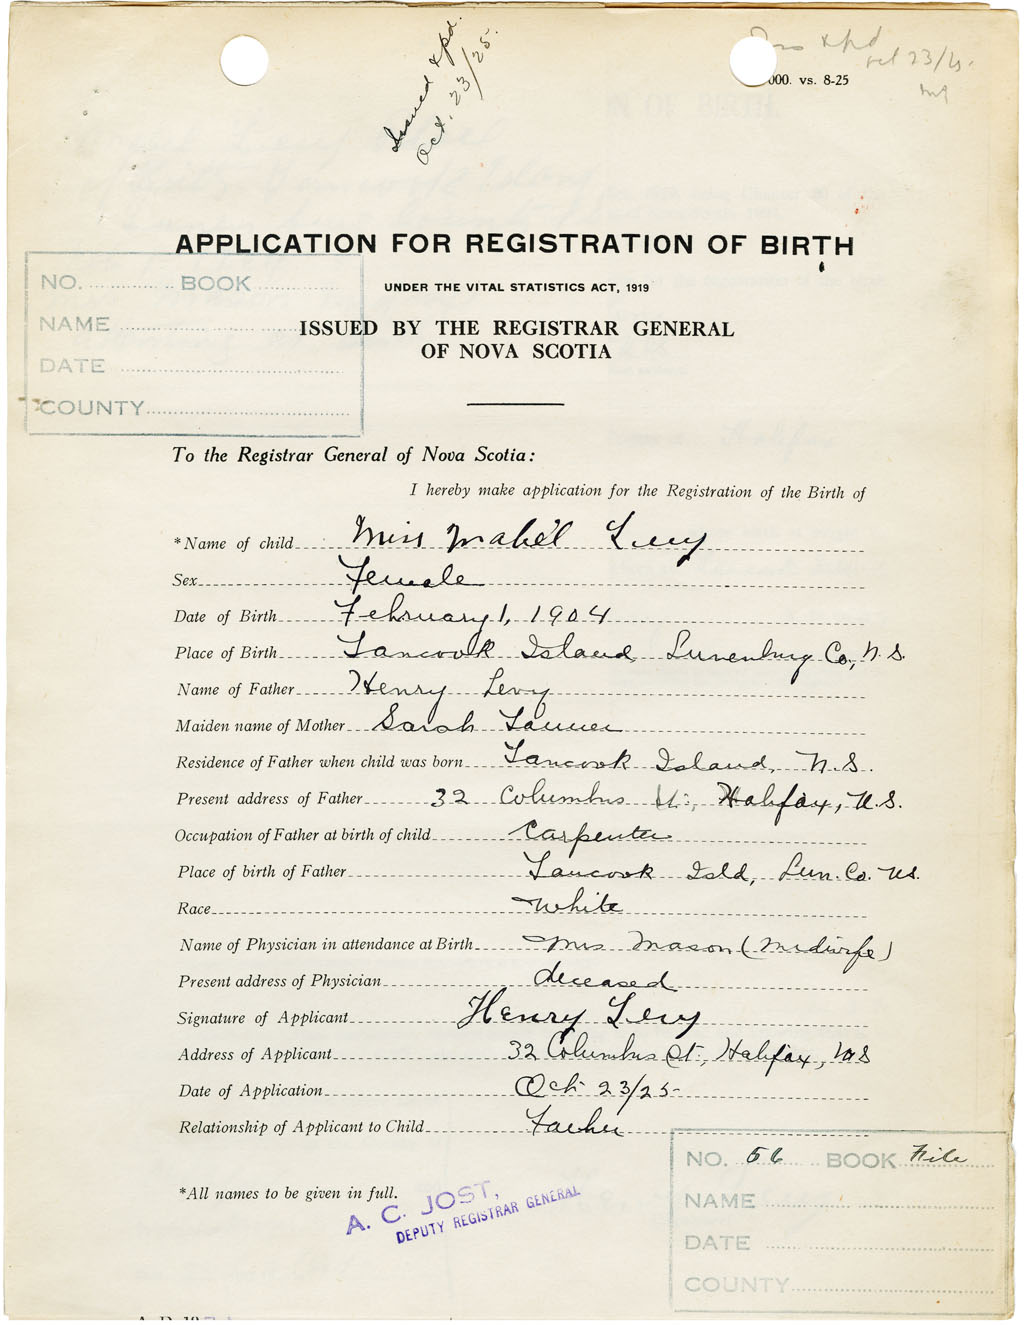 Issued & pd.
Oct. 23/25.
& pd
Oct 23/25.
000. vs. 8-25
APPLICATION FOR REGISTRATION OF BIRTH
UNDER THE VITAL STATISTICS ACT, 1919
ISSUED BY THE REGISTRAR GENERAL
OF NOVA SCOTIA
NO. BOOK
NAME
DATE
COUNTY
To the Registrar General of Nova Scotia:
I hereby make application for the Registration of the Birth of
*Name of child Miss Mabel Levy
Sex Female
Date of Birth February 1, 1904
Place of Birth Tancook Island Lunenburg Co., N.S.
Name of Father Henry Levy
Maiden name of Mother Sarah Tanner
Residence of Father when child was born Tancook Island, N.S.
Present address of Father 32 Columbus St., Halifax, N.S.
Occupation of Father at birth of child Carpenter
Place of birth of Father Tancook Isld, Lun. Co. NS.
Race White
Name of Physician in attendance at Birth Mrs Mason (Midwife)
Present address of Physician deceased
Signature of Applicant Henry Levy
Address of Applicant 32 Columbus St., Halifax, NS
Date of Application Oct 23/25
Relationship of Applicant to Child Father
*All names to be given in full.
A. C. JOST,
DEPUTY REGISTRAR GENERAL
NO. 56 BOOK File
NAME
DATE
COUNTY